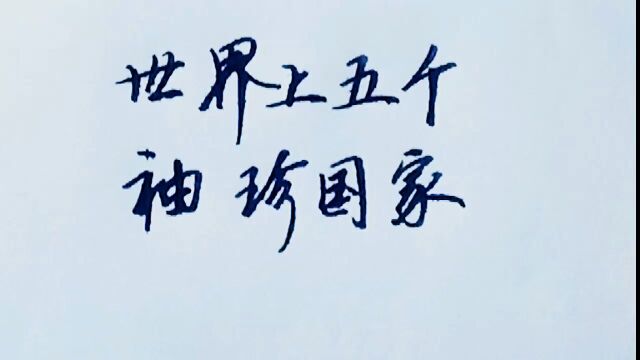 世界上五个
袖珍国家